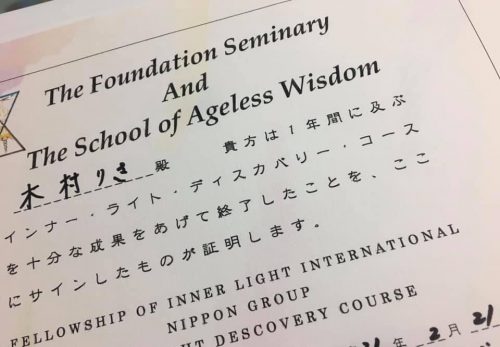 The Foundation Seminary
And
The School of Ageless Wisdom
木村りさ 殿 貴方は1年間に及ぶ
インナー・ライト・ディスカバリー・コース
を十分な成果をあげて終了したことを、ここ
にサインしたものが証明します。
FELLOWSHIP OF INNER LIGHT INTERNATIONAL
NIPPON GROUP
HT DESCOVERY COURSE
年2月21